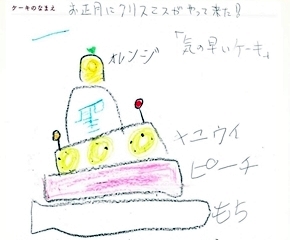 ケーキのなまえ お正月にクリスマスがやって来た!
「気の早いケーキ」
オレンジ
キュウイ
ピーチ
もち